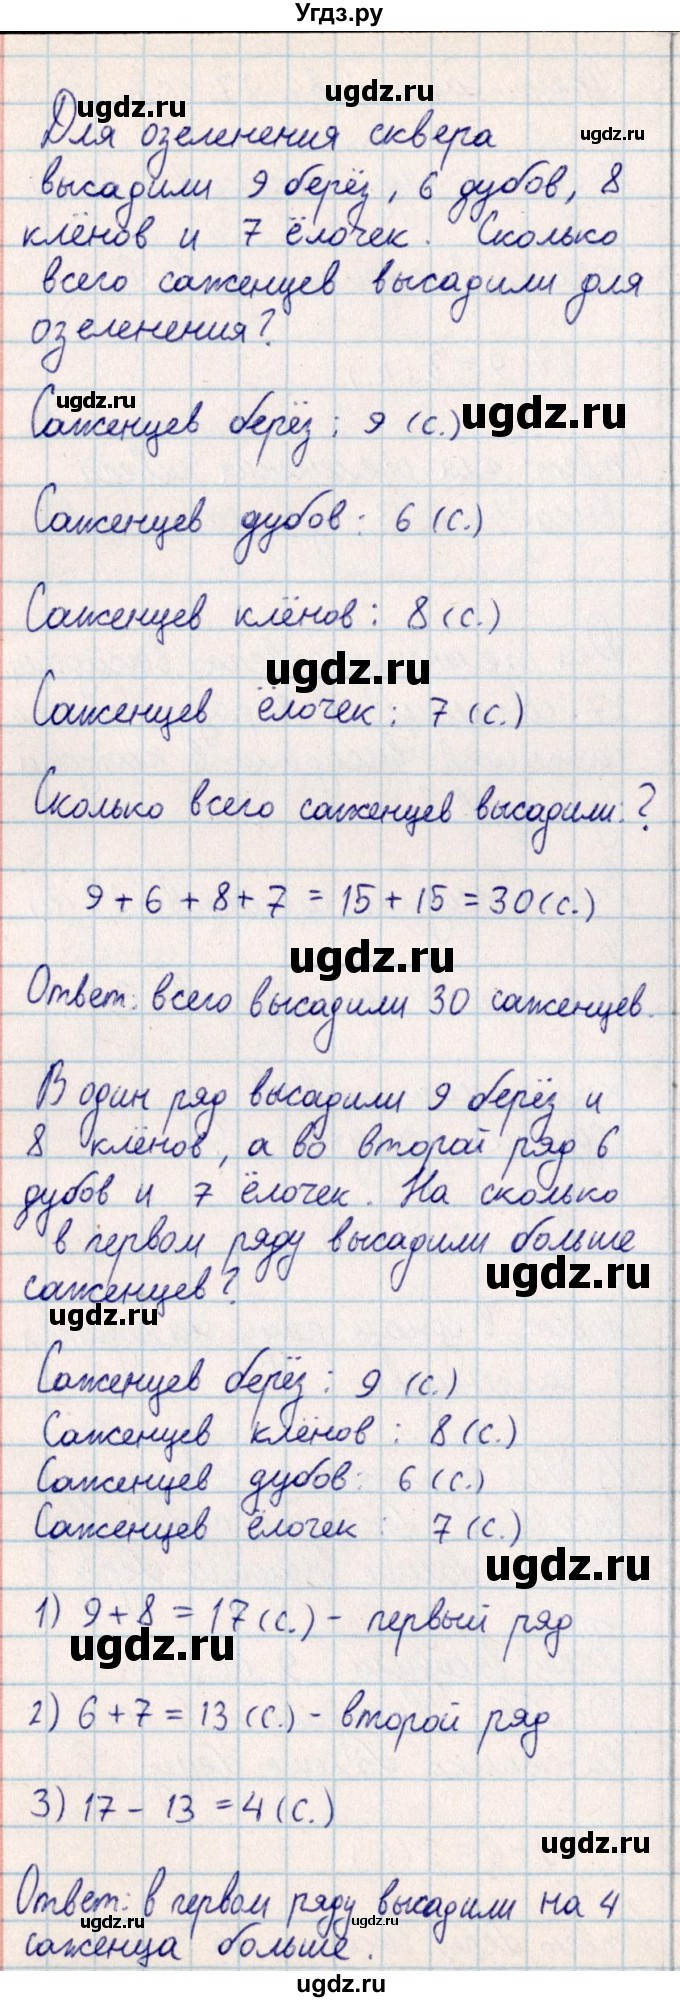 Угдз.ру
ugdz.ru
ugdz.ru
ugdz.ru
Для озеленения сквера
высадили 9 берёз, 6 дубов, 8
клёнов и 7 ёлочек. Сколько
всего саженцев высадили для
озеленения?
ugdz.ru
ugdz.ru
Саженцев берёз: 9 (с.)
Саженцев дубов: 6 (с.)
Саженцев клёнов: 8 (с.)
ugdz.ru
Саженцев ёлочек: 7 (с.)
Сколько всего саженцев высадили: ?
9 + 6 + 8 + 7 = 15 + 15 = 30 (с.)
ugdz.ru
Ответ: всего высадили 30 саженцев.
В один ряд высадили 9 берёз и
8 клёнов, а во второй ряд 6
дубов и 7 ёлочек. На сколько
в первом ряду высадили больше
ugdz.ru
саженцев?
ugdz.ru
Саженцев берёз: 9 (с.)
Саженцев клёнов: 8 (с.)
Саженцев дубов: 6 (с.)
Саженцев ёлочек: 7 (с.)
ugdz.ru
1) 9 + 8 = 17 (с.) - первый ряд
ugdz.ru
2) 6 + 7 = 13 (с.) - второй ряд
3) 17 - 13 = 4 (с.)
ugdz.ru
Ответ: в первом ряду высадили на 4
ugdz.ru
ugdz.ru
саженца больше.
ugdz.ru